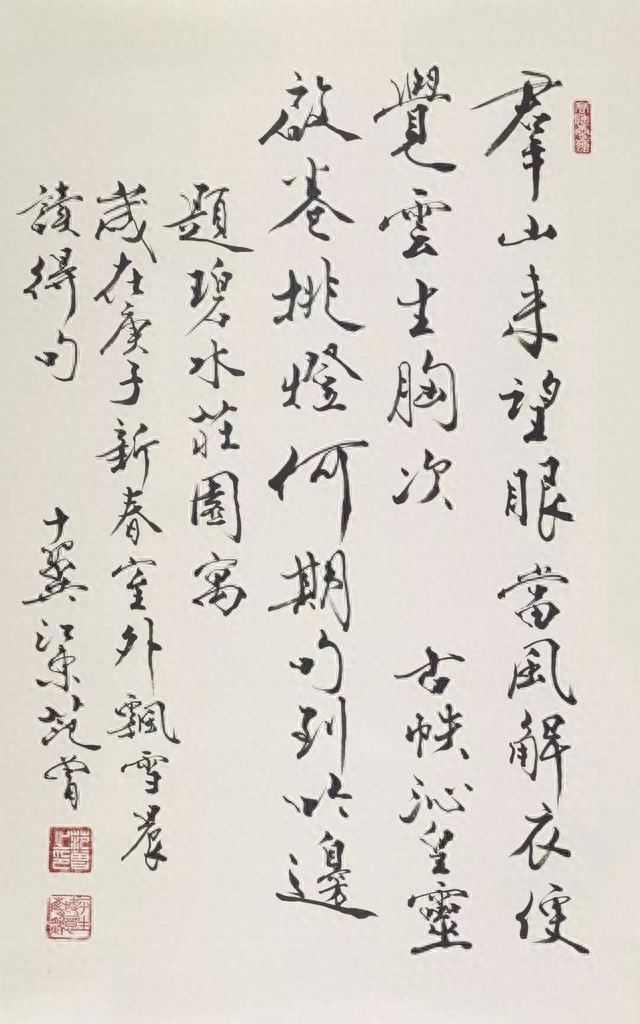 羣山来望眼當風解衣便
覺雲生胸次 古帙沁皇靈
啟卷挑燈何期句到吟邊
題碧水莊園寓
歲在庚子新春室外飄雪晨
讀得句 十翼江東范曾